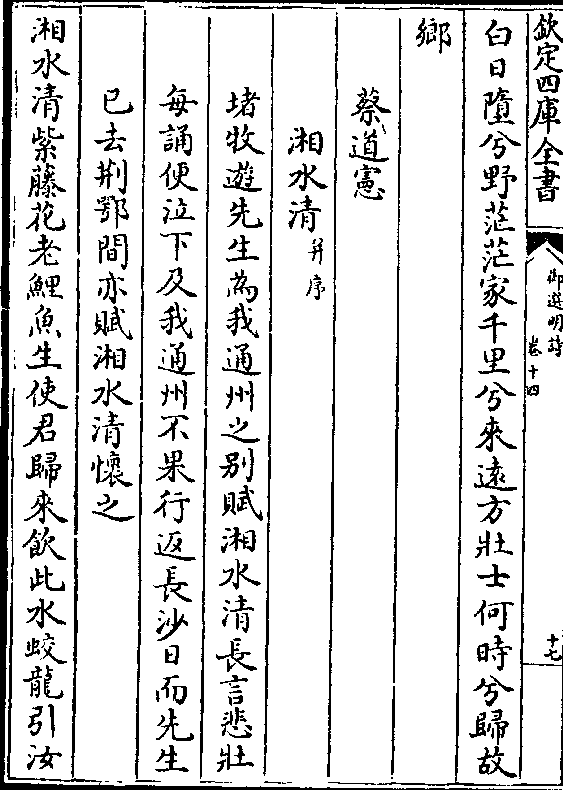 欽定四庫全書
御選明詩
卷十四
十七
白日墮兮野茫茫家千里兮來遠方壯士何時兮歸故
鄉
蔡道憲
湘水清并序
堵牧遊先生為我通州之别賦湘水清長言悲壯
每誦便泣下及我通州不果行返長沙日而先生
已去荆鄂間亦賦湘水清懷之
湘水清紫藤花老鯉魚生使君歸來飲此水蛟龍引汝